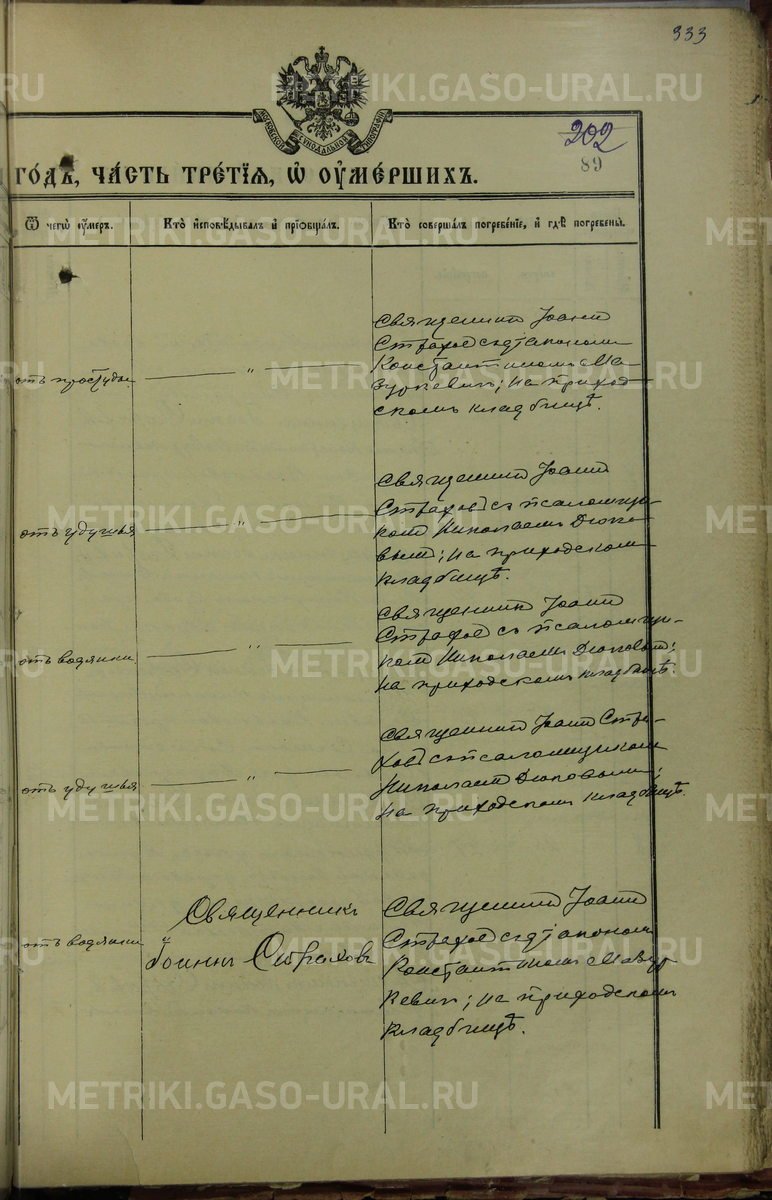 333
МОСКОВСКОЙ СѴНОДАЛЬНОЙ ТИПОГРАФІИ
202
89
го́дъ, ча́сть тре́тїѧ, ѡ҆ ᲂу҆ме́ршихъ.
Ѿ чегѡ̀ ᲂу҆́меръ.
Кто̀ и҆сповѣ́дывалъ и҆ прїѻбща́лъ.
Кто̀ соверша́лъ погребе́нїе, и҆ гдѣ̀ погребены̀.
отъ простуды
— " —
Священникъ Іоаннъ
Страховъ съ діакономъ
Константиномъ Ма-
зуркевич; на приход-
скомъ кладбищѣ.
отъ удушья
— " —
Священникъ Іоаннъ
Страховъ съ псаломщи-
комъ Николаемъ
на приходскомъ
кладбищѣ.
отъ водянки
— " —
Священникъ Іоаннъ
Страховъ съ псаломщи-
комъ Николаемъ
на приходскомъ кладбищѣ.
отъ удушья
— " —
Священникъ Іоаннъ Стра-
ховъ съ псаломщикомъ
Николаемъ
на приходскомъ кладбищѣ.
отъ водянки
Священникъ
Іоаннъ Страховъ
Священникъ Іоаннъ
Страховъ съ діакономъ
Константиномъ Мазур-
кевич; на приходскомъ
кладбищѣ.
METRIKI.GASO-URAL.RU